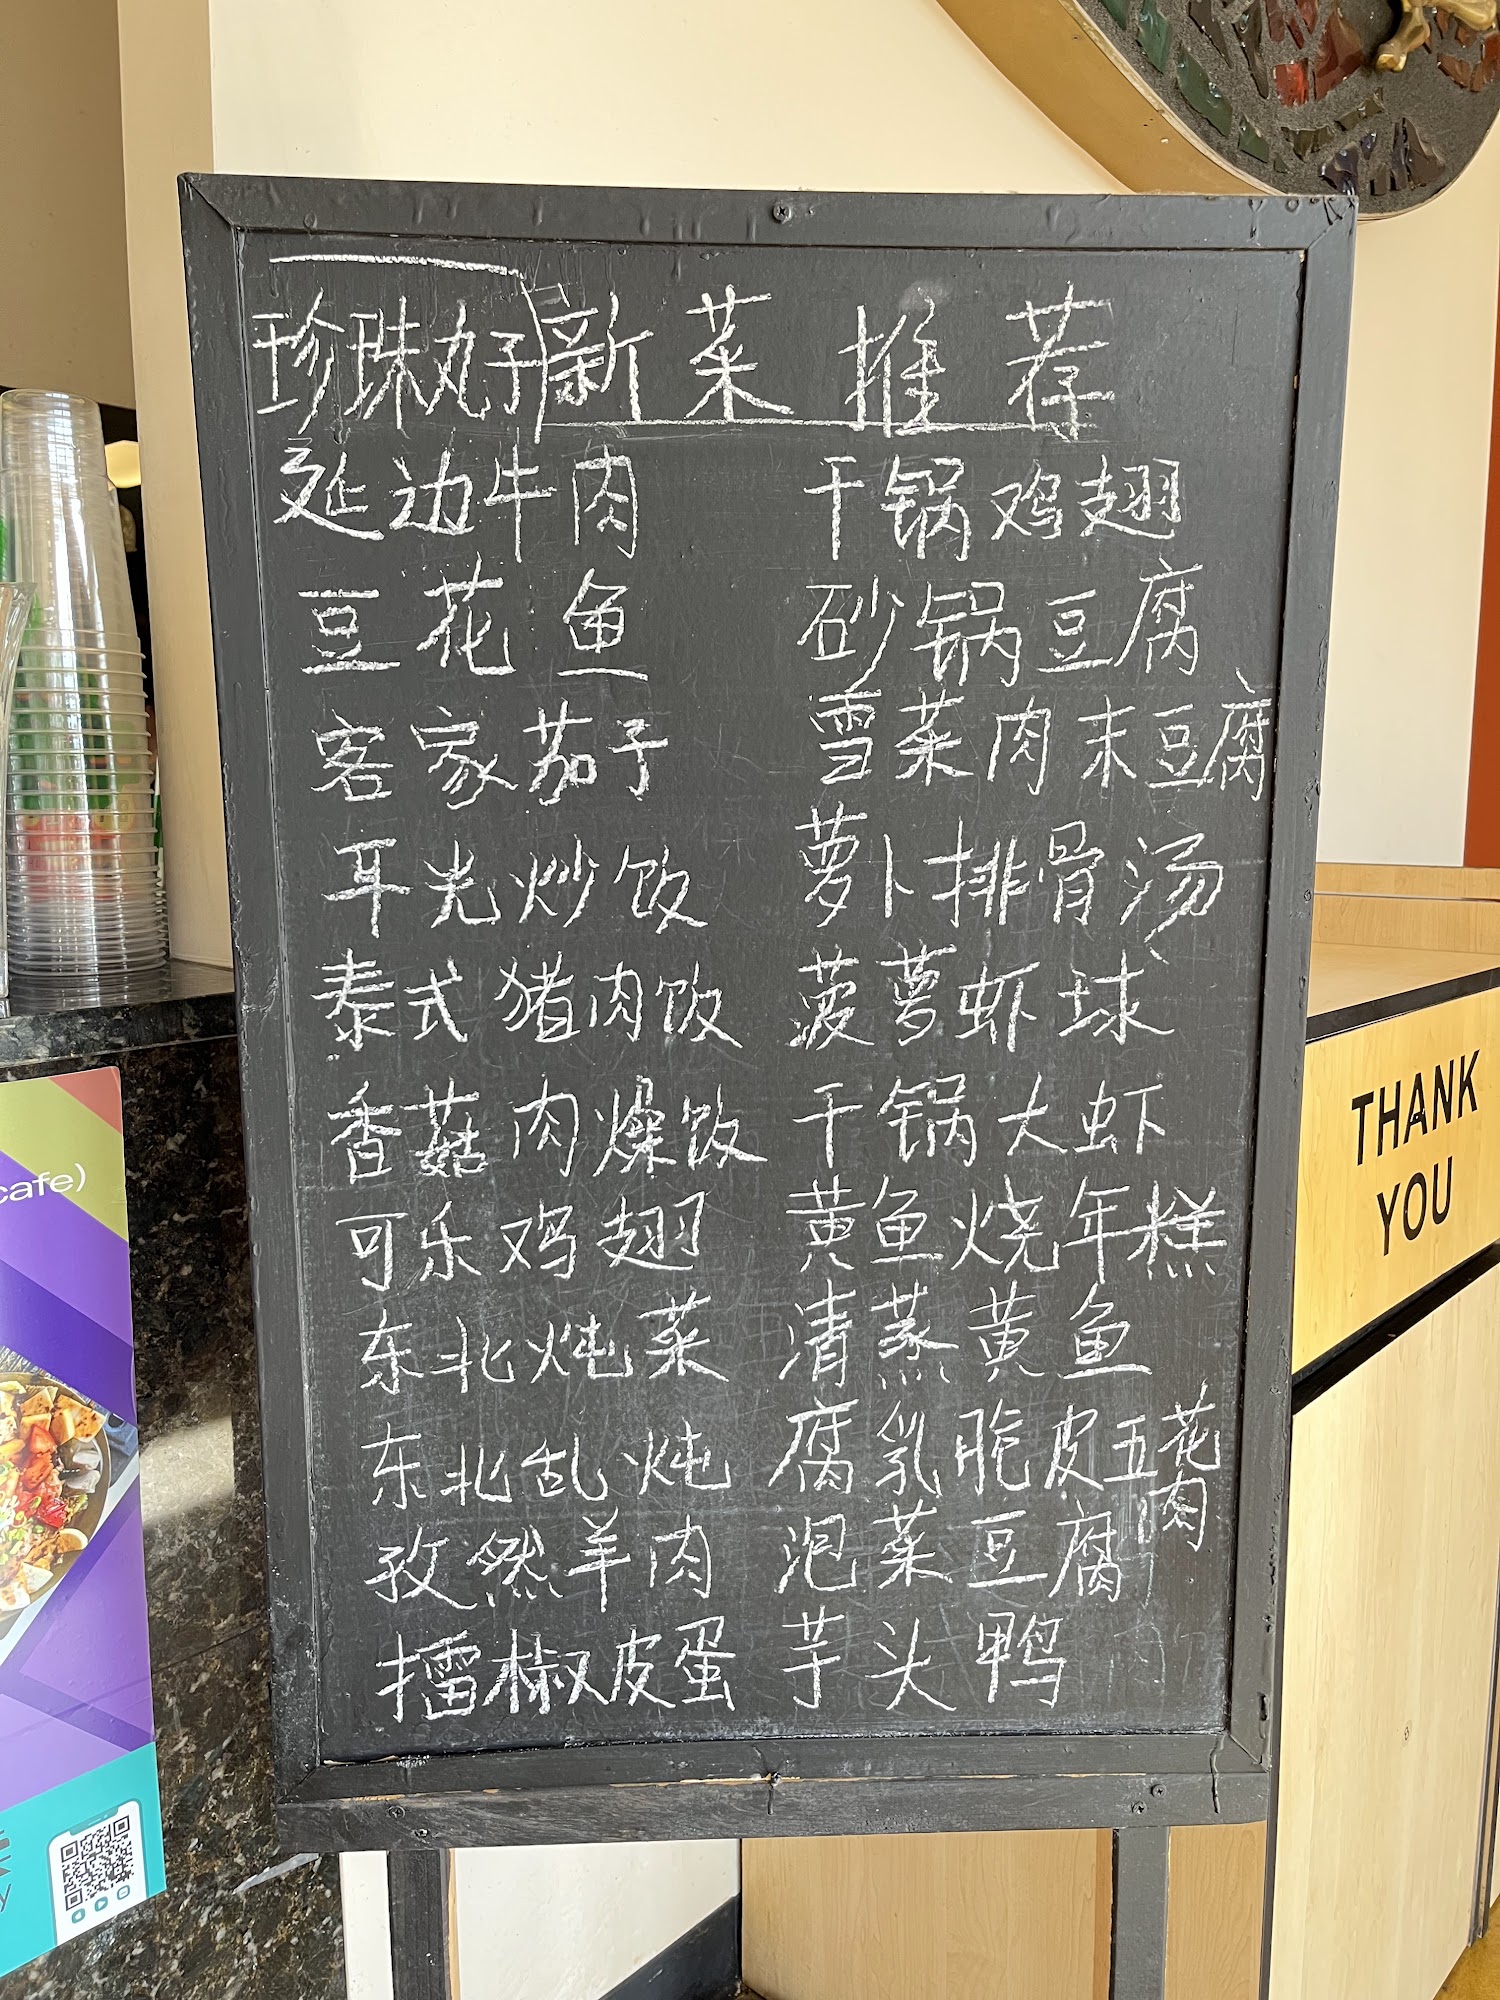 珍珠丸子
新菜推荐
延边牛肉
豆花鱼
客家茄子
耳光炒饭
泰式猪肉饭
香菇肉燥饭
可乐鸡翅
东北炖菜
东北乱炖
孜然羊肉
擂椒皮蛋
干锅鸡翅
砂锅豆腐
雪菜肉末豆腐
萝卜排骨汤
菠萝虾球
干锅大虾
黄鱼烧年糕
清蒸黄鱼
腐乳脆皮五花
肉
泡菜豆腐
芋头鸭
THANK
YOU
cafe)